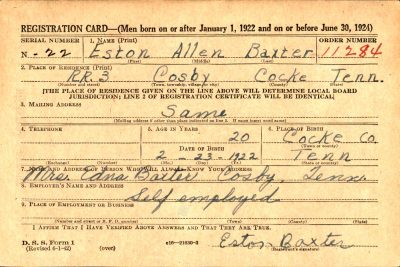 REGISTRATION CARD—(Men born on or after January 1, 1922 and on or before June 30, 1924)
SERIAL NUMBER 1. NAME (Print) ORDER NUMBER
N.-22 Eston Allen Baxter 11284
(First) (Middle) (Last)
2. PLACE OF RESIDENCE (Print)
R.R.3 Cosby Cocke Tenn.
[THE PLACE OF RESIDENCE GIVEN ON THE LINE ABOVE WILL DETERMINE LOCAL BOARD
JURISDICTION; LINE 2 OF REGISTRATION CERTIFICATE WILL BE IDENTICAL]
3. MAILING ADDRESS
Same
[Mailing address if other than place indicated on line 2. If same insert word same]
4. TELEPHONE 5. AGE IN YEARS 6. PLACE OF BIRTH
20 Cocke Co.
DATE OF BIRTH (Town or county)
2 - 23 - 1922 Tenn
(Exchange) (Number) (Mo.) (Day) (Yr.) (State or country)
7. NAME AND ADDRESS OF PERSON WHO WILL ALWAYS KNOW YOUR ADDRESS
Mrs. Baxter Cosby, Tenn.
8. EMPLOYER'S NAME AND ADDRESS
Self employed
9. PLACE OF EMPLOYMENT OR BUSINESS
(Number and street or R. F. D. number) (Town) (County) (State)
I AFFIRM THAT I HAVE VERIFIED ABOVE ANSWERS AND THAT THEY ARE TRUE.
D. S. S. Form 1
(Revised 6-1-42) (over) c16—21630-2 Eston Baxter
(Registrant's signature)